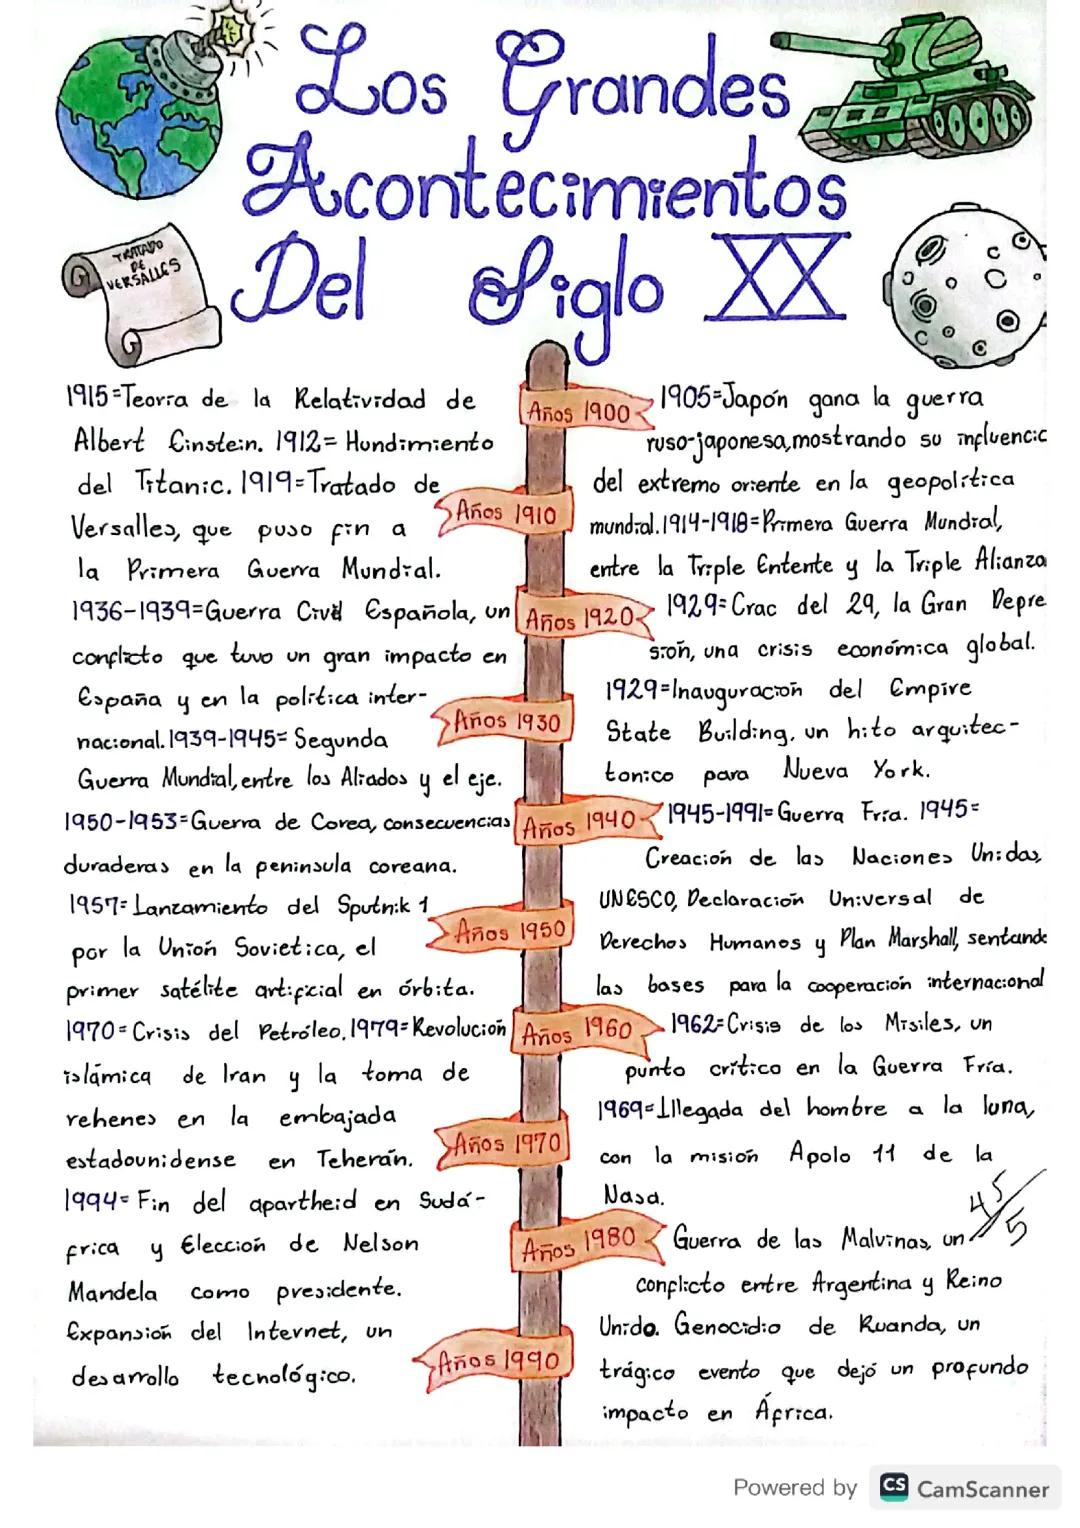 Los Grandes
Acontecimientos
Del Siglo XX
TRATADO
DE
VERSALLES
1915=Teoría de la Relatividad de
Albert Einstein. 1912= Hundimiento
del Titanic. 1919=Tratado de
Versalles, que puso fin a
la Primera Guerra Mundial.
1936-1939=Guerra Civil Española, un
conflicto que tuvo un gran impacto en
España y en la política inter-
nacional. 1939-1945= Segunda
Guerra Mundial, entre los Aliados y el eje.
1950-1953=Guerra de Corea, consecuencias
duraderas en la peninsula coreana.
1957= Lanzamiento del Sputnik 1
por la Unión Sovietica, el
primer satélite artificial en órbita.
1970= Crisis del Petróleo. 1979= Revolución
islámica de Iran y la toma de
rehenes en la embajada
estadounidense en Teherán.
1994= Fin del apartheid en Sudá-
frica y Elección de Nelson
Mandela como presidente.
Expansión del Internet, un
desarrollo tecnológico.
Años 1900
Años 1910
Años 1920
Años 1930
Años 1940
Años 1950
Años 1960
Años 1970
Años 1980
Años 1990
1905=Japón gana la guerra
ruso-japonesa, mostrando su influenc
del extremo oriente en la geopolítica
mundial. 1914-1918=Primera Guerra Mundial,
entre la Triple Entente y la Triple Alianza
1929= Crac del 29, la Gran Depre
sión, una crisis económica global.
1929=Inauguración del Empire
State Building, un hito arquitec-
tonico para Nueva York.
1945-1991= Guerra Fría. 1945=
Creación de las Naciones Unidas,
UNESCO, Declaración Universal de
Derechos Humanos y Plan Marshall, sentando
las bases para la cooperación internacional
1962= Crisis de los Misiles, un
punto crítico en la Guerra Fría.
1969=Lllegada del hombre a la luna,
con la misión Apolo 11 de la
Nasa.
45/5
Guerra de las Malvinas, un
conflicto entre Argentina y Reino
Unido. Genocidio de Ruanda, un
trágico evento que dejó un profundo
impacto en África.
Powered by CS CamScanner